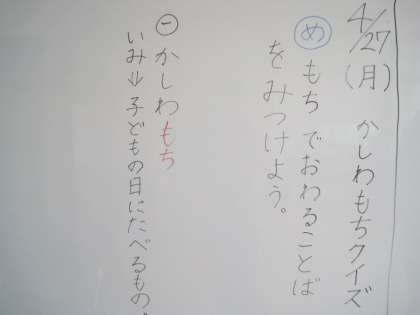 4/27(月) かしわもちクイズ
め もちでおわることば
をみつけよう。
一 かしわもち
いみ⇒子どもの日にたべるもの。